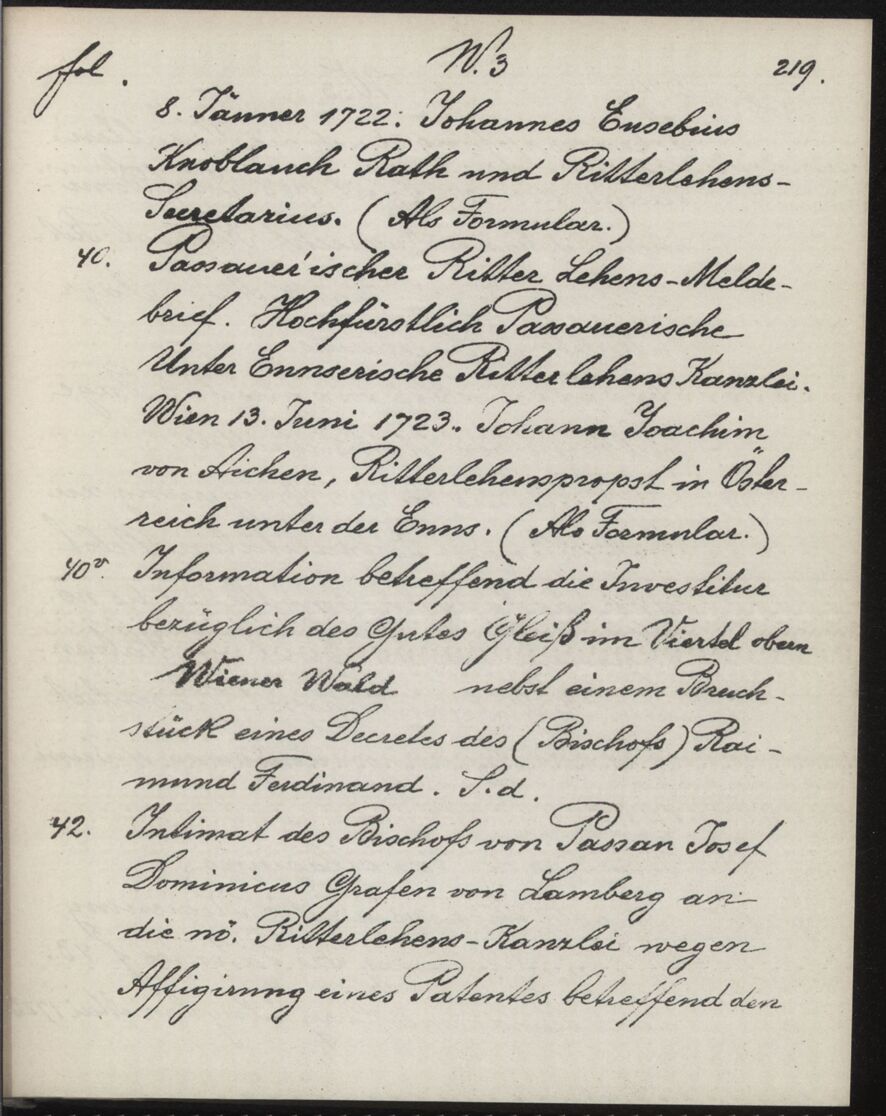 fol. N. 3 219.
8. Jänner 1722. Johannes Eusebius
Knoblauch Rath und Ritterlehens-
Secretarius. (Als Formular.)
40. Passauer'ischer Ritter Lehens-Melde-
brief. Hochfürstlich Passauerische
Unter Ennserische Ritterlehens Kanzlei.
Wien 13. Juni 1723. Johann Joachim
von Aichen, Ritterlehenspropst in Öster-
reich unter der Enns. (Als Formular.)
40v. Information betreffend die Investitur
bezüglich des Gutes Gleiß im Viertel obern
Wiener Wald nebst einem Bruch-
stück eines Decretes des (Bischofs) Rai-
mund Ferdinand. S.d.
42. Intimat des Bischofs von Passau Josef
Dominicus Grafen von Lamberg an
die nö. Ritterlehens-Kanzlei wegen
Affigirung eines Patentes betreffend den